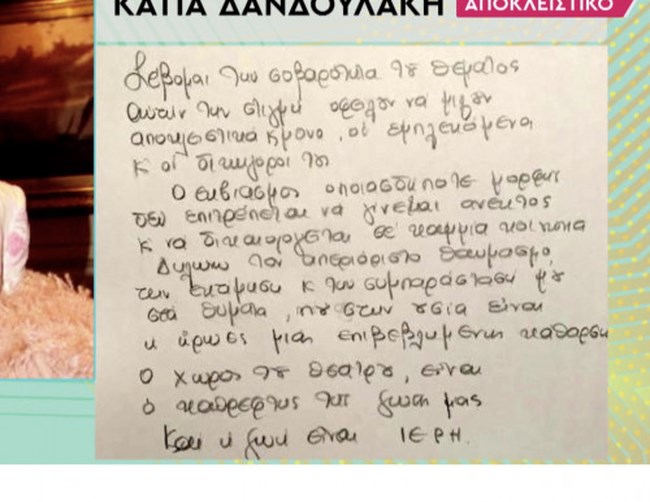 ΚΑΤΙΑ ΔΑΝΔΟΥΛΑΚΗ ΑΠΟΚΛΕΙΣΤΙΚΟ
Σεβομαι την σοβαροτητα τȣ θεματος
αυτην την στιγμη οφειλȣν να μιλȣν
αποκλειστικα κ μονο, οι εμπλεκομενοι
κ οι δικηγοροι τȣς
Ο εκβιασμος οποιασδηποτε μορφης
δεν επιτρεπεται να γινεται ανεκτος
κ να δικαιολογειται σε καμμια κοινωνια
Δηλωνω τον απεριοριστο θαυμασμο,
την εκτιμηση κ την συμπαρασταση μȣ
στα θυματα, πȣ στην ȣσια ειναι
κ ηρωες μιας επιβεβλημενης καθαρση
Ο χωρος τȣ θεατρȣ, ειναι
ο καθρεφτης της ζωης μας
Και η ζωη ειναι ΙΕΡΗ.